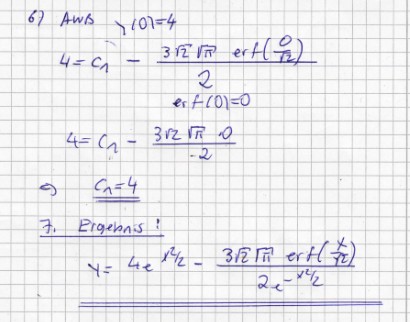 6) AWB y(0)=4
4 = C₁ − (3√2 √π erf(0/√2))/2
erf(0)=0
4 = C₁ − (3√2 √π ·0)/-2
⇒ C₁=4
7. Ergebnis:
y = 4e^(x²/2) − (3√2 √π erf(x/√2))/(2e^(−x²/2))